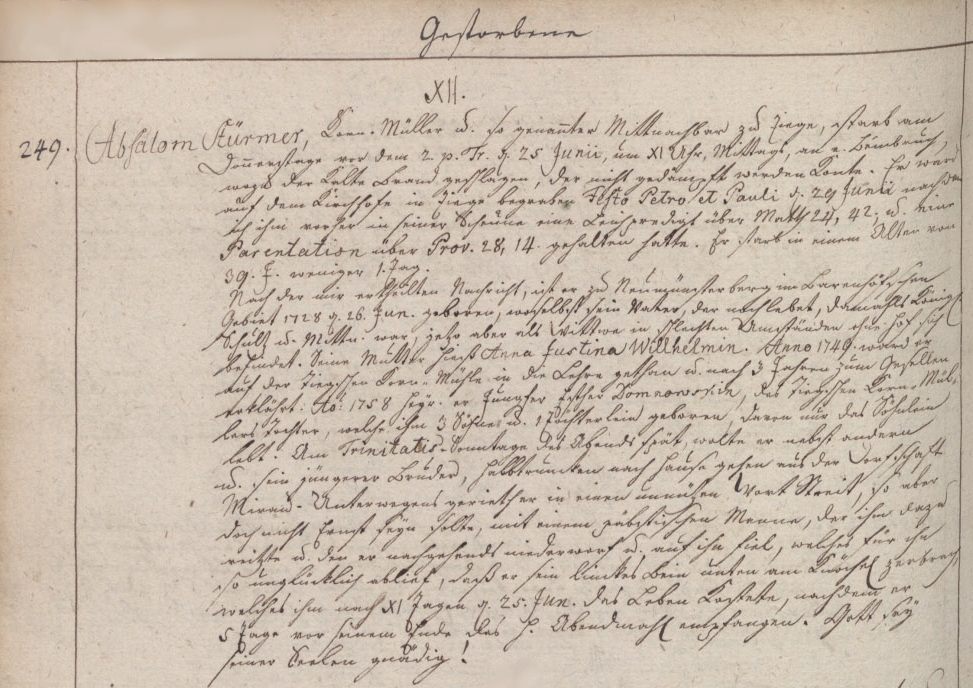 Gestorbene
XII.
249. Absalom Stürmer, Korn-Müller u. so genannter Mittnachbar zu Ziege, starb am
Donnerstage vor dem 2. p. Tr. d. 25 Junii, um XI Uhr, Mittags, an e. Beinbruch,
wozu der Kalte Brand geschlagen, der nicht gedämpft werden konte. Er ward
auf dem Kirchhofe in Ziege begraben Festo Petro et Pauli d. 29 Junii nachdem
ich ihm vorher in seiner Scheune eine Leichpredigt über Matth 24, 42. u. eine
Parentation über Prov. 28, 14. gehalten hatte. Er starb in einem Alter von
39. J. weniger 1. Tag.
Nach der mir ertheilten Nachricht, ist er zu Neumünsterberg im Barenhöfschen
Gebiet 1728 d. 26. Jun. geboren, woselbst sein Vater, der noch lebet, damahls Königl
Schultz u. Mittn. war, jetzo aber als Wittwer in schlechten Umständen ohne Hof sich
befindet. Seine Mutter hiess Anna Justina Willhelmin. Anno 1749. ward er
auf der Ziegschen Korn-Mühle in die Lehre gethan u. nach 3 Jahren zum Gesellen
erklährt. Ao: 1758 heyr. er Jungfer Esther Domnowskin, des Ziegschen Korn-Mül-
lers Tochter, welche ihm 3 Söhne u. 1 Töchterlein geboren, davon nur das Söhnlein
lebt. Am Trinitatis-Sonntage des Abends spät, wolte er nebst andern
u. sein jüngerer Bruder, halbtruncken nach Hause gehen aus der Dorfschaft
Mirau. Unterwegens gerieth er in einen unnützen Wort Streit, so aber
doch nicht Ernst seyn solte, mit einem päbstischen Manne, der ihn dazu
reitzte u. den er nachgehends niederworf u. auf ihn fiel, welches für ihn
so unglücklich ablief, daß er sein linckes Bein unten am Knöchel zerbrach,
welches ihm nach XI Tagen d. 25. Jun. das Leben Kostete, nachdem er
5 Tage vor seinem Ende das H. Abendmahl empfangen. Gott sey
seiner Seelen gnädig!